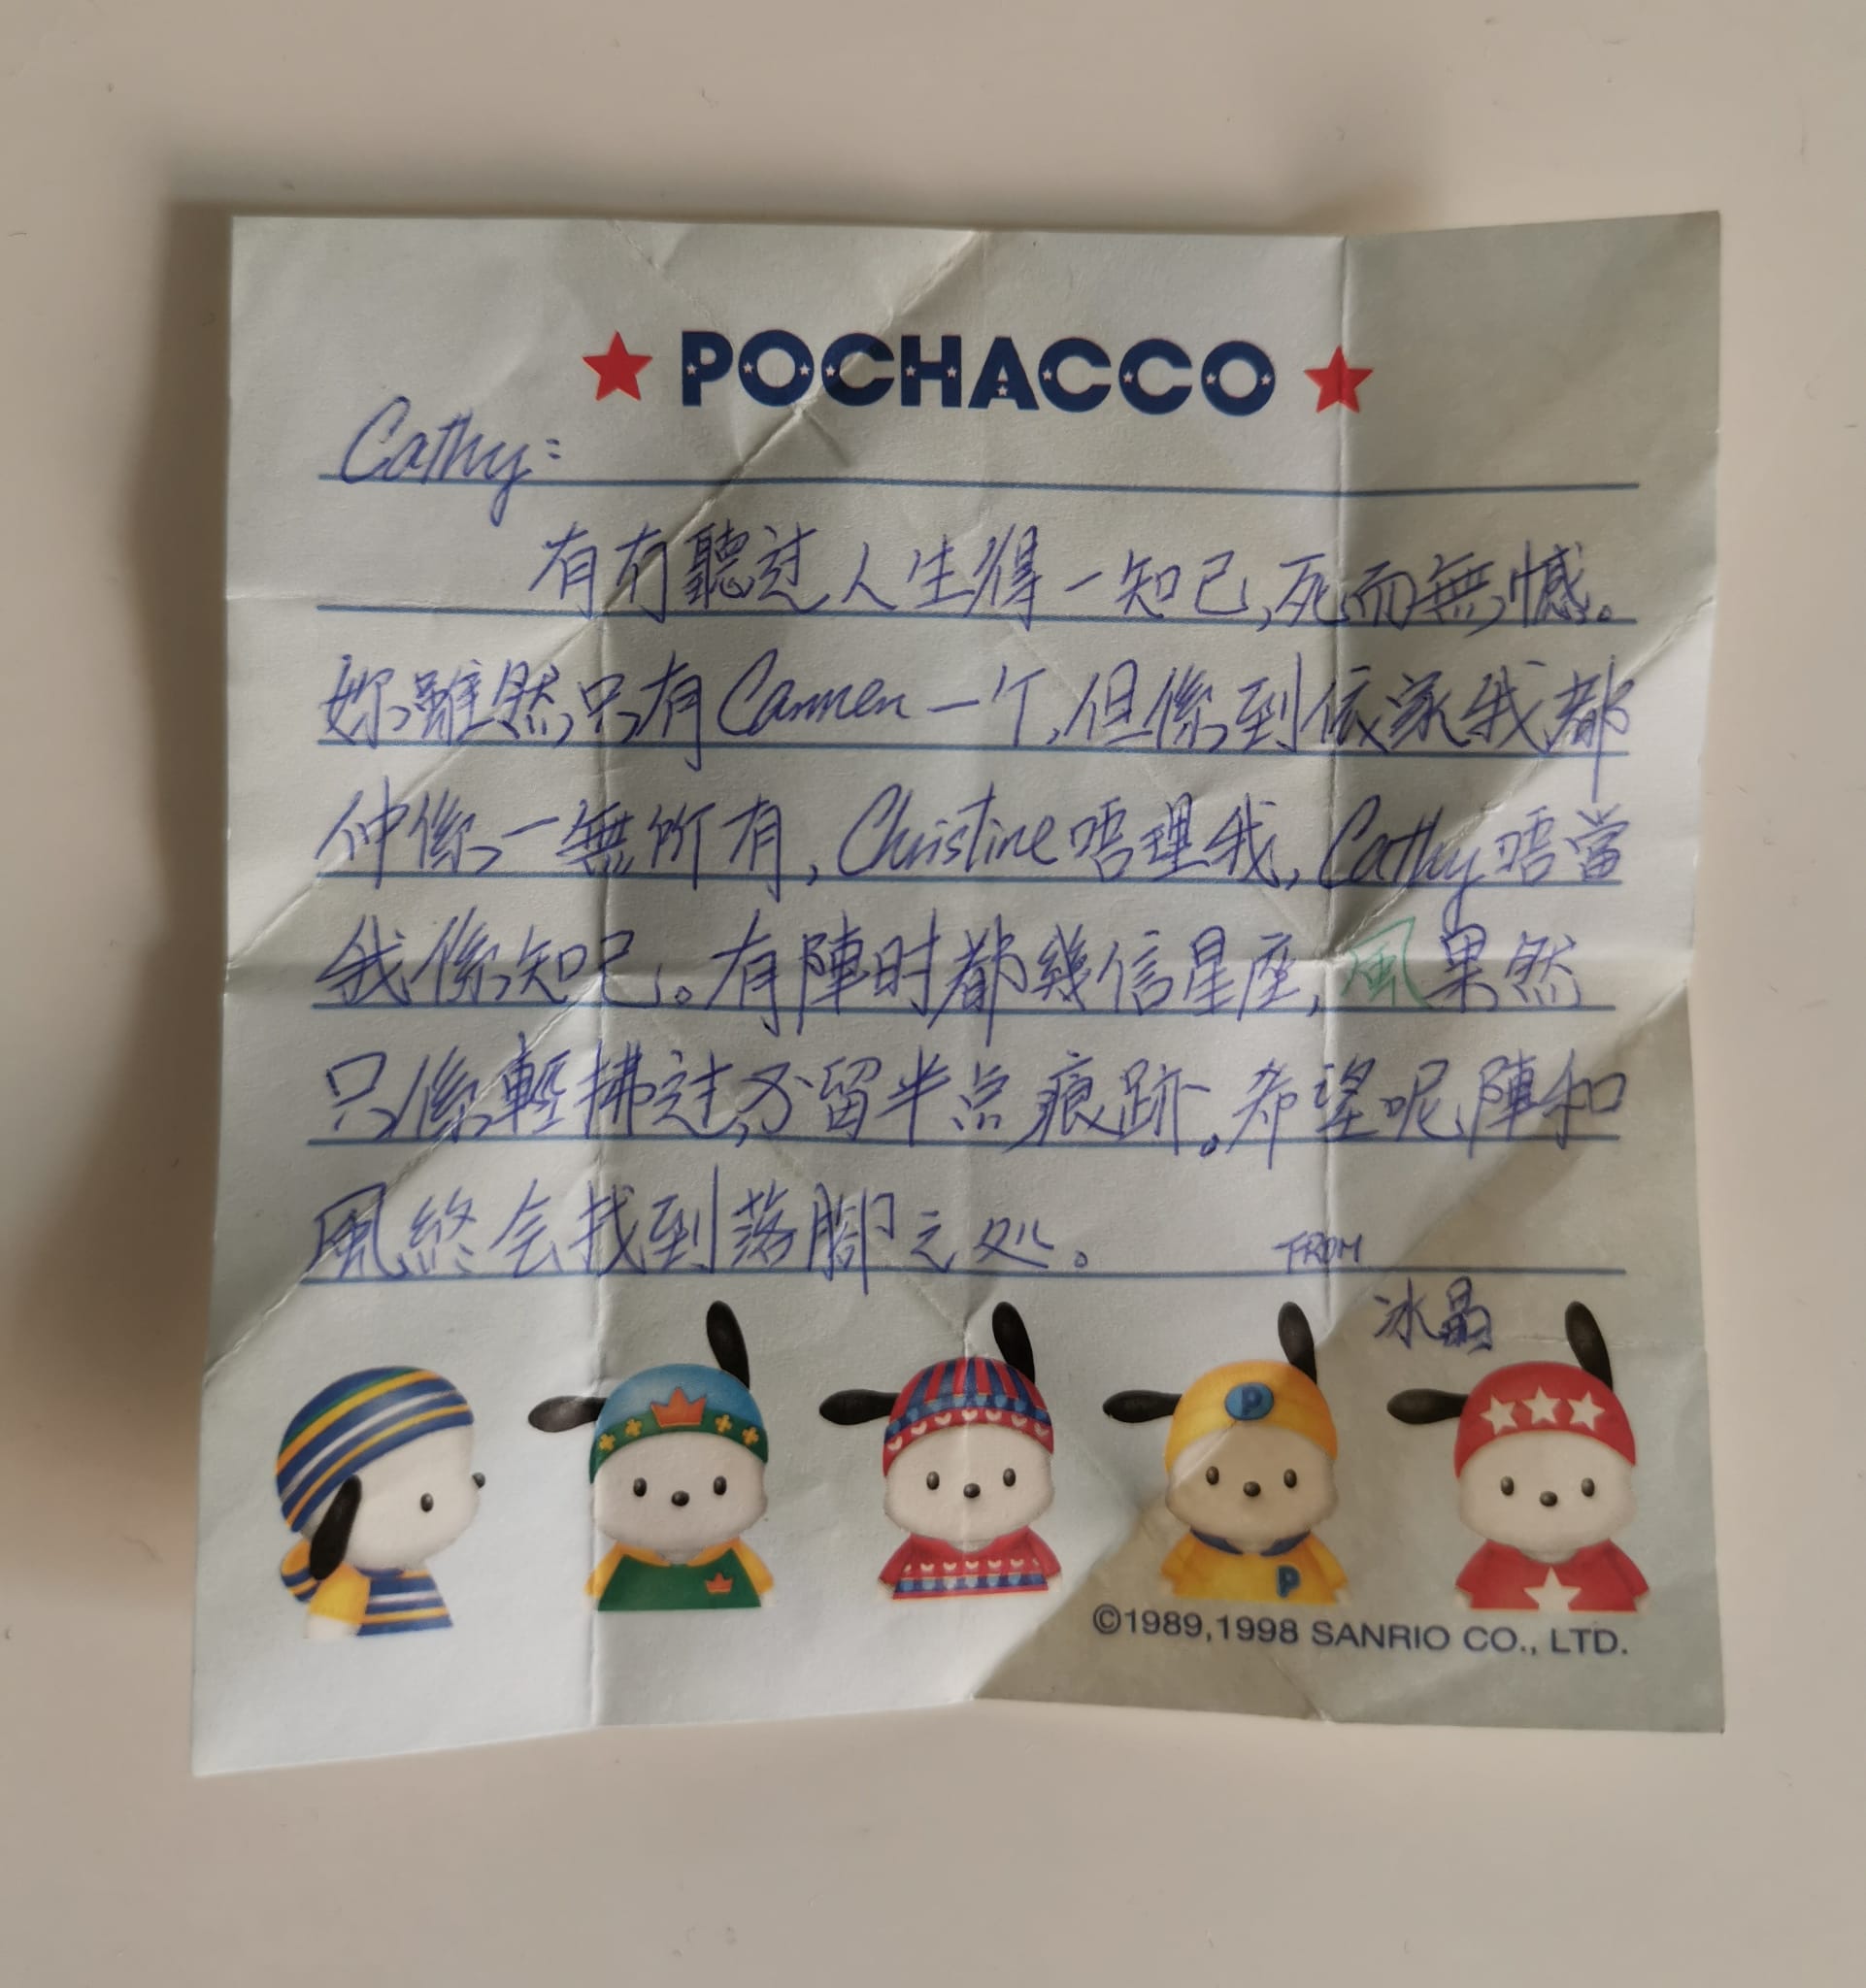 POCHACCO
Cathy:
有冇聽过人生得一知己,死而無憾。
妳雖然只有Carmen一个,但係到依家我都
仲係一無所有,Christine唔理我,Cathy唔當
我係知己。有陣时都幾信星座,風果然
只係輕拂过,不留半点痕跡。希望呢陣和
風終会找到落腳之处。
FROM
冰晶
P
P
©1989,1998 SANRIO CO., LTD.